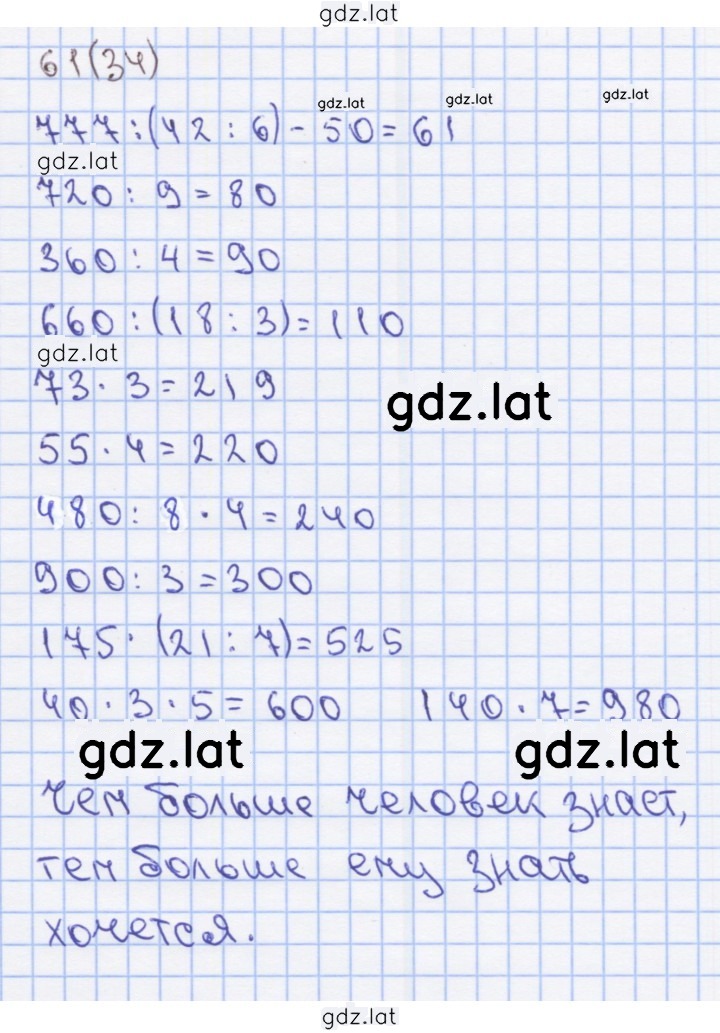 gdz.lat
61(34)
gdz.lat gdz.lat gdz.lat
777:(42:6)-50=61
gdz.lat
720:9=80
360:4=90
660:(18:3)=110
gdz.lat
73·3=219
gdz.lat
55·4=220
480:8·4=240
900:3=300
175·(21:7)=525
40·3·5=600 140·7=980
gdz.lat gdz.lat
Чем больше человек знает,
тем больше ему знать
хочется.
gdz.lat